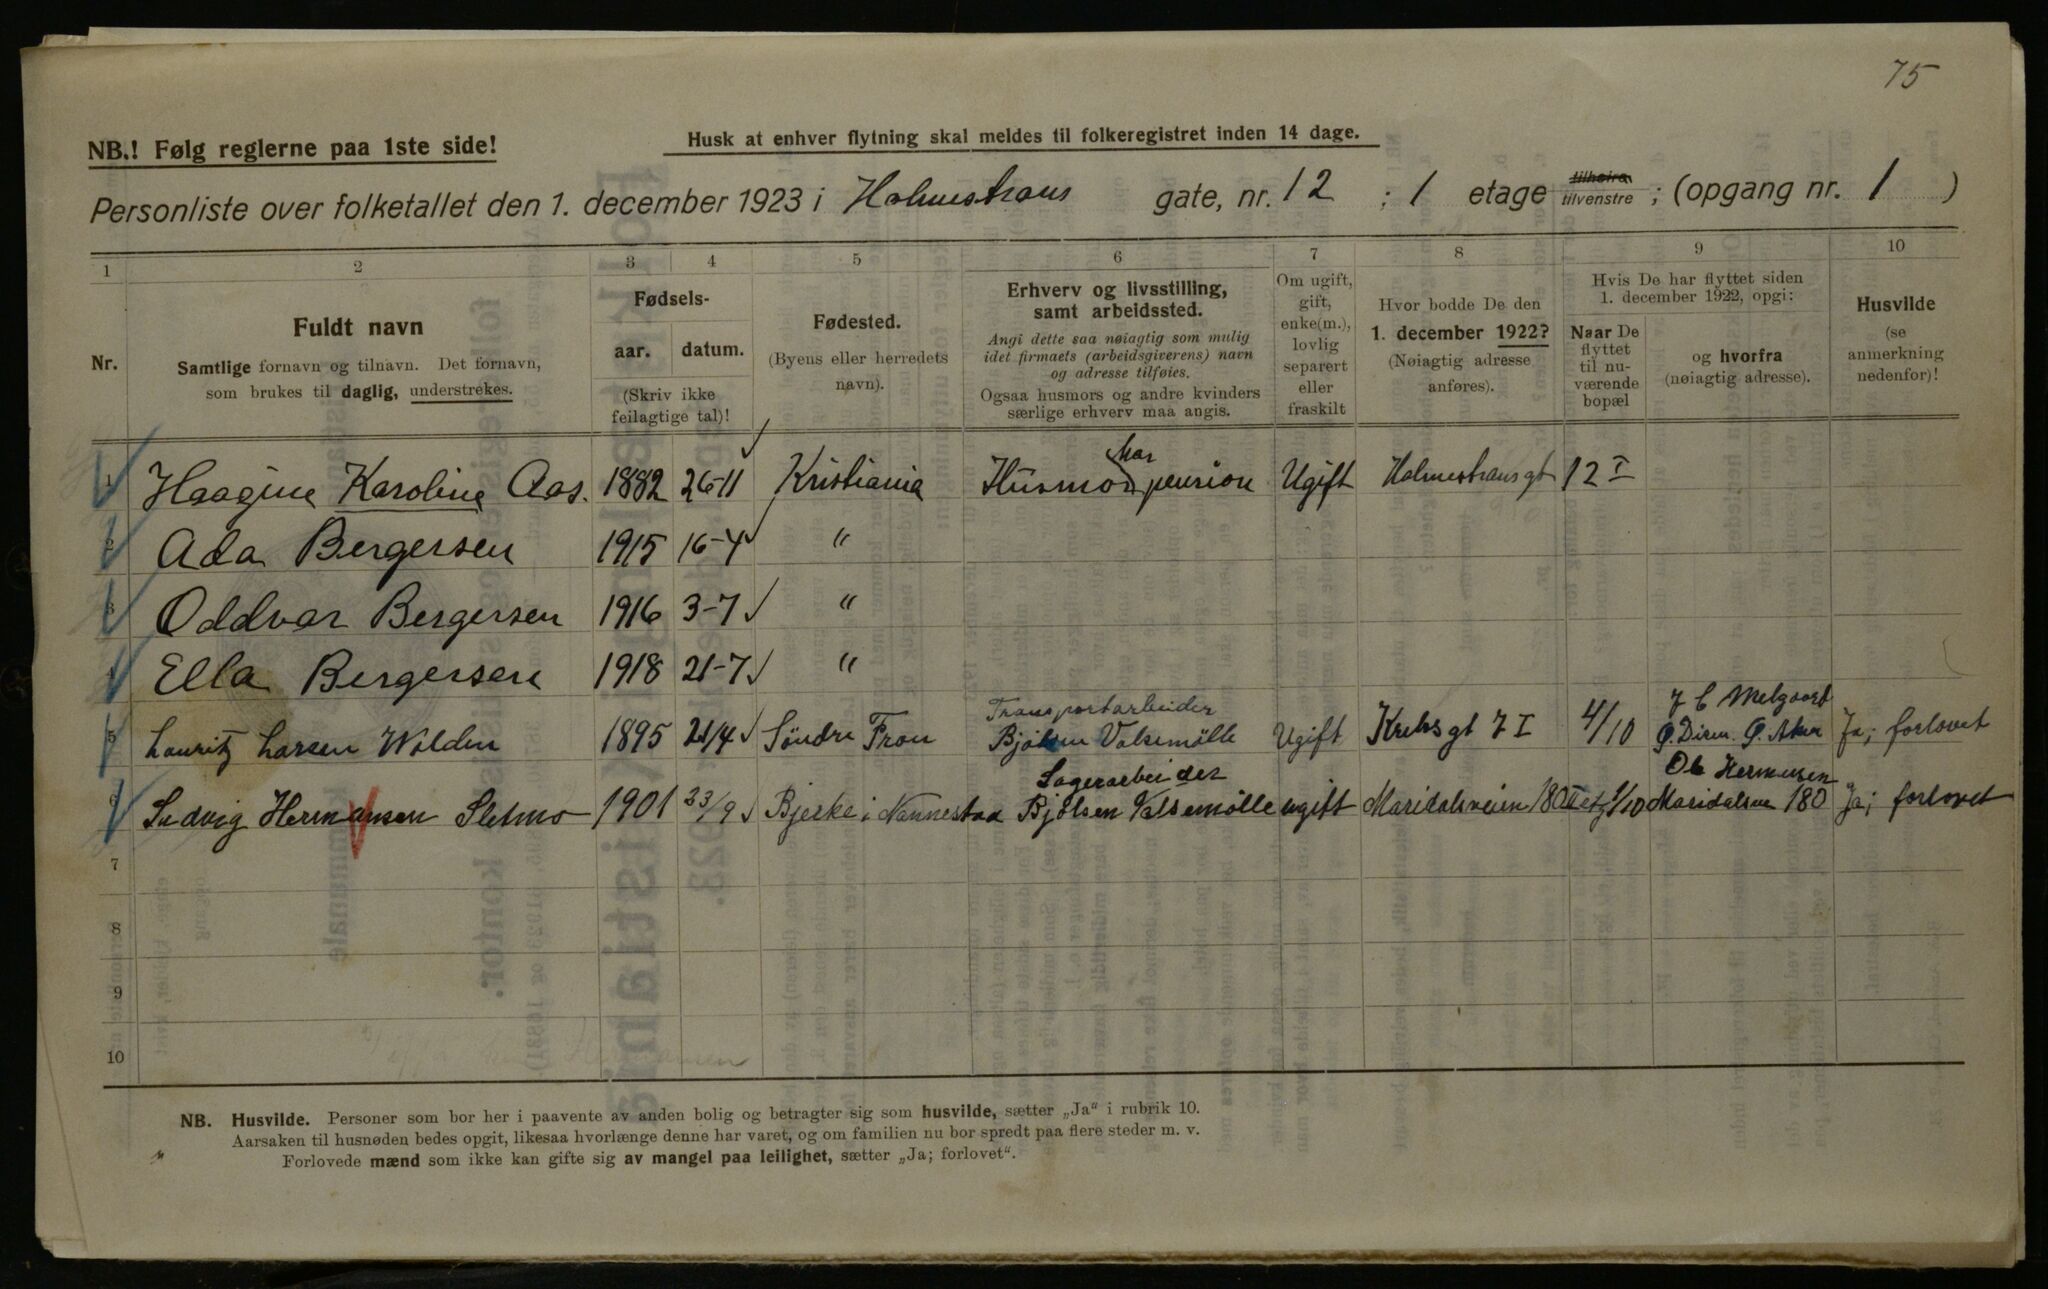 75
NB.! Følg reglerne paa 1ste side!
Husk at enhver flytning skal meldes til folkeregistret inden 14 dage.
Personliste over folketallet den 1. december 1923 i Holmestrans gate, nr. 12 ; 1 etage tilhøire tilvenstre ; (opgang nr. 1 )
1 2 3 4 5 6 7 8 9 10
Nr.
Fuldt navn
Samtlige fornavn og tilnavn. Det fornavn,
som brukes til daglig, understrekes.
Fødsels-
aar. datum.
(Skriv ikke
feilagtige tal)!
Fødested.
(Byens eller herredets
navn).
Erhverv og livsstilling,
samt arbeidssted.
Angi dette saa nøiagtig som mulig
idet firmaets (arbeidsgiverens) navn
og adresse tilføies.
Ogsaa husmors og andre kvinders
særlige erhverv maa angis.
Om ugift,
gift,
enke(m.),
lovlig
separert
eller
fraskilt
Hvor bodde De den
1. december 1922?
(Nøiagtig adresse
anføres).
Hvis De har flyttet siden
1. december 1922, opgi:
Naar De
flyttet
til nu-
værende
bopæl
og hvorfra
(nøiagtig adresse).
Husvilde
(se
anmerkning
nedenfor)!
1 Haagine Karoline Aas. 1882 26-11 Kristiania Husmor har pension Ugift Holmestransgt 12 I
2 Ada Bergersen 1915 16-4 "
3 Oddvar Bergersen 1916 3-7 "
4 Ella Bergersen 1918 21-7 "
5 Lauritz Larsen Wolden 1895 21/4 Søndre Fron Transportarbeider Bjølsen Valsemølle Ugift Krebsgt 7 I 4/10 J C Melgaard Ø. Aker Ja; forlovet
6 Ludvig Hermansen Sletmo 1901 23/9 Bjerke i Nannestad Lagerarbeider Bjølsen Valsemølle ugift Maridalsveien 180 1/10 Ole Hermansen Maridalsvn 180 Ja; forlovet
7
8
9
10
NB. Husvilde. Personer som bor her i paavente av anden bolig og betragter sig som husvilde, sætter „Ja“ i rubrik 10.
Aarsaken til husnøden bedes opgit, likesaa hvorlænge denne har varet, og om familien nu bor spredt paa flere steder m. v.
Forlovede mænd som ikke kan gifte sig av mangel paa leilighet, sætter „Ja; forlovet“.